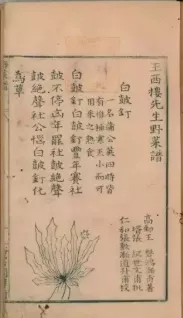 王西樓先生野菜譜
高郵王 磐鴻漸甫著
仁和張 甫校
白鼓釘
一名蒲公英四時皆
有惟極寒天小而可
用采之熟食
白鼓釘白鼓釘豐年賽社
鼓不停凶年罷社鼓絕聲
鼓絕聲社公惱白鼓釘化
為草